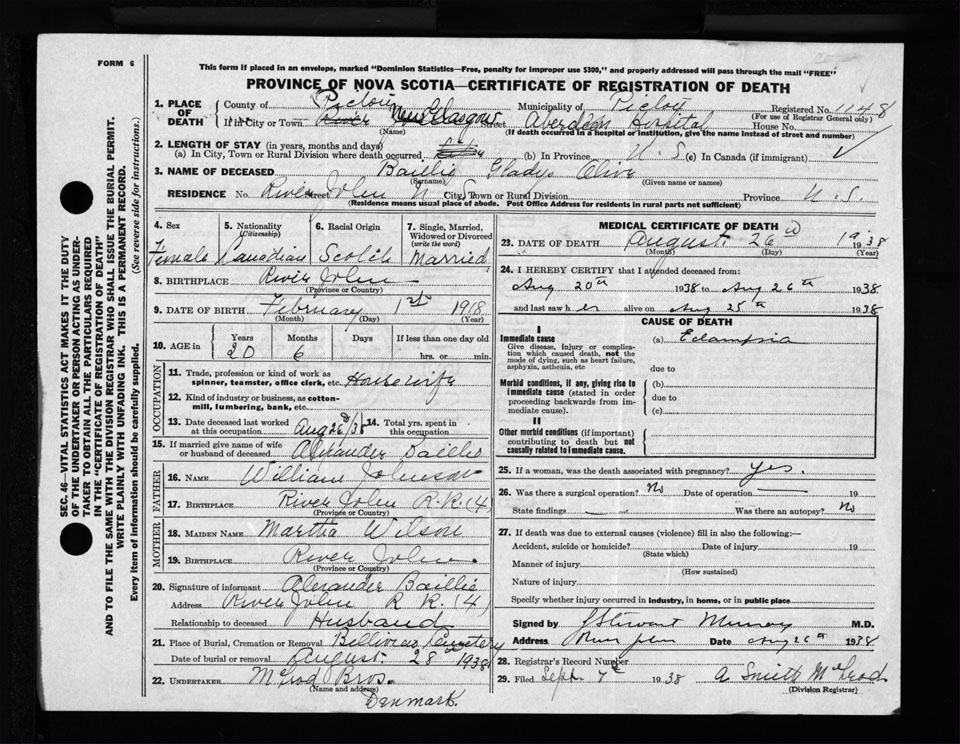 FORM 6
This form if placed in an envelope, marked "Dominion Statistics—Free, penalty for improper use $300," and properly addressed will pass through the mail "FREE"
PROVINCE OF NOVA SCOTIA—CERTIFICATE OF REGISTRATION OF DEATH
1. PLACE OF DEATH
County of Pictou Municipality of Pictou Registered No. 1148
(For use of Registrar General only)
If in City or Town River New Glasgow Street Aberdeen Hospital House No.
(Name) (If death occurred in a hospital or institution, give the name instead of street and number)
2. LENGTH OF STAY (in years, months and days)
(a) In City, Town or Rural Division where death occurred (b) In Province N.S. (c) In Canada (if immigrant)
3. NAME OF DECEASED Baillie Gladys Olive
(Surname) (Given name or names)
RESIDENCE No. River John N.S. Street City, Town or Rural Division Province N.S.
(Residence means usual place of abode. Post Office Address for residents in rural parts not sufficient)
4. Sex
Female
5. Nationality (Citizenship)
Canadian
6. Racial Origin
Scotch
7. Single, Married, Widowed or Divorced (write the word)
Married
8. BIRTHPLACE River John
(Province or Country)
9. DATE OF BIRTH February 1st 1918
(Month) (Day) (Year)
10. AGE in
Years Months Days If less than one day old
20 6 hrs. or min.
OCCUPATION
11. Trade, profession or kind of work as spinner, teamster, office clerk, etc. Housewife
12. Kind of industry or business, as cotton-mill, lumbering, bank, etc.
13. Date deceased last worked at this occupation Aug 26/38 14. Total yrs. spent in this occupation
15. If married give name of wife or husband of deceased Alexander Baillie
FATHER
16. NAME William Johnson
17. BIRTHPLACE River John R.R. (4)
(Province or Country)
MOTHER
18. MAIDEN NAME Martha Wilson
19. BIRTHPLACE River John
(Province or Country)
20. Signature of informant Alexander Baillie
Address River John R R (4)
Relationship to deceased Husband
21. Place of Burial, Cremation or Removal Cemetery
Date of burial or removal August 28 1938
22. UNDERTAKER McLeod Bros.
(Name and address)
Denmark.
MEDICAL CERTIFICATE OF DEATH
23. DATE OF DEATH August 26th 1938
(Month) (Day) (Year)
24. I HEREBY CERTIFY that I attended deceased from:
Aug 20th 1938 to Aug 26th 1938
and last saw her alive on Aug 25th 1938
CAUSE OF DEATH
I
Immediate cause
Give disease, injury or complication which caused death, not the mode of dying, such as heart failure, asphyxia, asthenia, etc
(a) Eclampsia
due to
Morbid conditions, if any, giving rise to immediate cause (stated in order proceeding backwards from immediate cause).
(b)
due to
(c)
II
Other morbid conditions (if important) contributing to death but not causally related to immediate cause.
25. If a woman, was the death associated with pregnancy? yes.
26. Was there a surgical operation? No Date of operation — 19
State findings — Was there an autopsy? No
27. If death was due to external causes (violence) fill in also the following:—
Accident, suicide or homicide? Date of injury 19
(State which)
Manner of injury
(How sustained)
Nature of injury
Specify whether injury occurred in industry, in home, or in public place
Signed by J Stewart Murray M.D.
Address River John Date Aug 26th 1938
28. Registrar's Record Number
29. Filed Sept. 7th 1938 A Smith McLeod
(Division Registrar)
SEC. 46—VITAL STATISTICS ACT MAKES IT THE DUTY
OF THE UNDERTAKER OR PERSON ACTING AS UNDER-
TAKER TO OBTAIN ALL THE PARTICULARS REQUIRED
IN THE "CERTIFICATE OF REGISTRATION OF DEATH"
AND TO FILE THE SAME WITH THE DIVISION REGISTRAR WHO SHALL ISSUE THE BURIAL PERMIT.
WRITE PLAINLY WITH UNFADING INK. THIS IS A PERMANENT RECORD.
Every item of information should be carefully supplied. (See reverse side for instructions.)